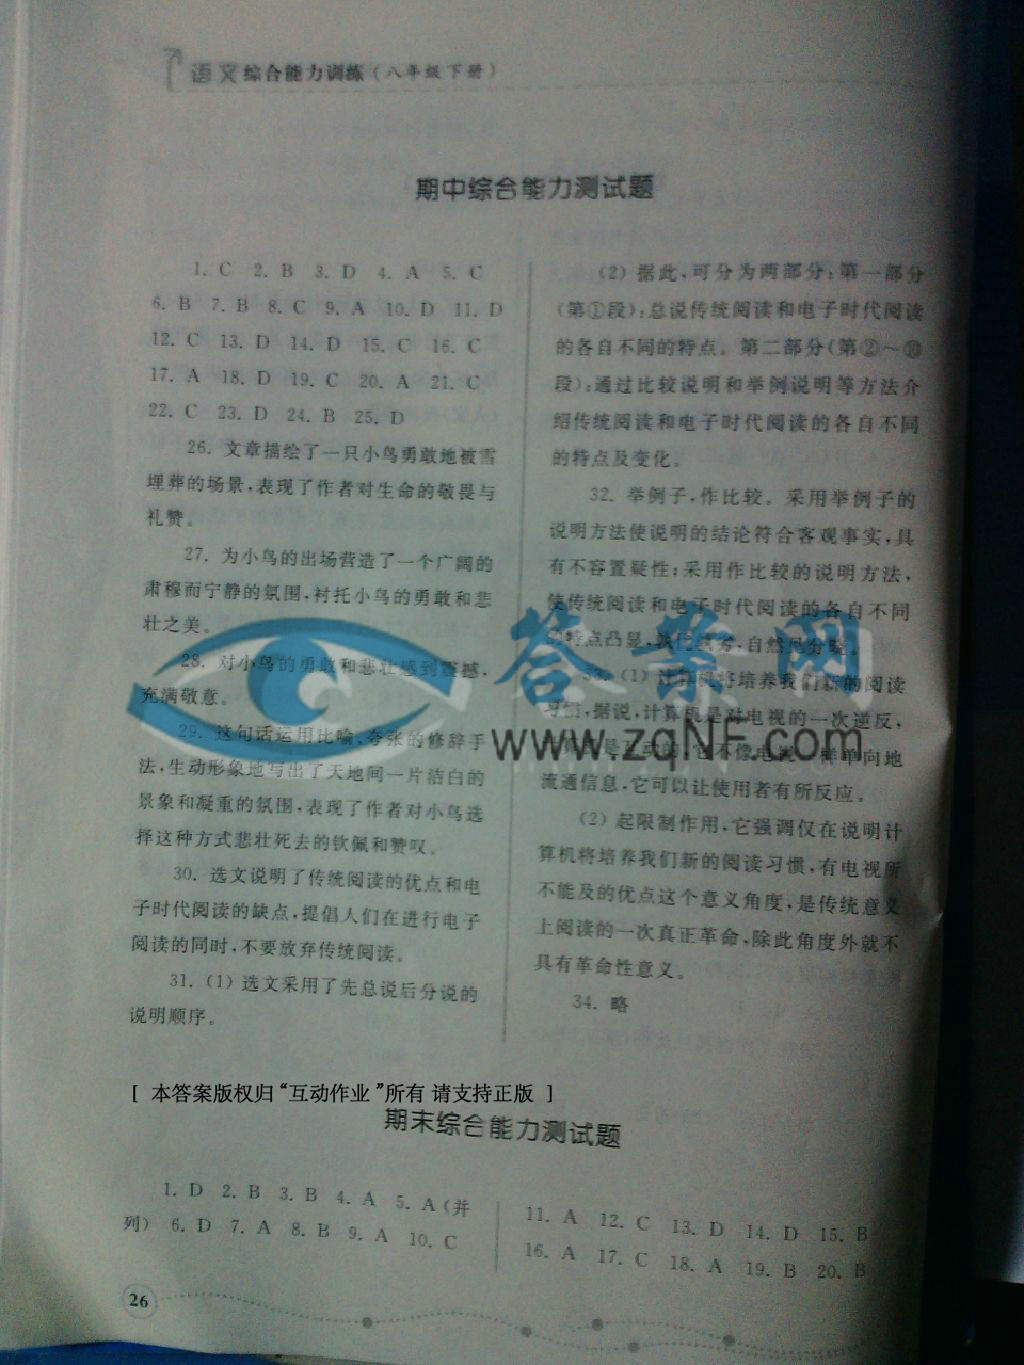 语文综合能力训练(八年级下册)
期中综合能力测试题
1. C 2. B 3. D 4. A 5. C
6. B 7. B 8. C 9. A 10. D 11. D
12. C 13. D 14. D 15. C 16. C
17. A 18. D 19. C 20. A 21. C
22. C 23. D 24. B 25. D
26. 文章描绘了一只小鸟勇敢地被雪
埋葬的场景,表现了作者对生命的敬畏与
礼赞。
27. 为小鸟的出场营造了一个广阔的
肃穆而宁静的氛围,衬托小鸟的勇敢和悲
壮之美。
28. 对小鸟的勇敢和悲壮感到震撼,
充满敬意。
29. 这句话运用比喻、夸张的修辞手
法,生动形象地写出了天地间一片洁白的
景象和凝重的氛围,表现了作者对小鸟选
择这种方式悲壮死去的钦佩和赞叹。
30. 选文说明了传统阅读的优点和电
子时代阅读的缺点,提倡人们在进行电子
阅读的同时,不要放弃传统阅读。
31. (1) 选文采用了先总说后分说的
说明顺序。
(2) 据此,可分为两部分:第一部分
(第①段):总说传统阅读和电子时代阅读
的各自不同的特点。第二部分(第②~⑩
段):通过比较说明和举例说明等方法介
绍传统阅读和电子时代阅读的各自不同
的特点及变化。
32. 举例子,作比较。采用举例子的
说明方法使说明的结论符合客观事实,具
有不容置疑性;采用作比较的说明方法,
使传统阅读和电子时代阅读的各自不同
的特点凸显,孰优孰劣,自然见分晓。
33. (1) 计算机将培养我们新的阅读
习惯,据说,计算机是对电视的一次逆反,
是互动的,它不像电视一样单向地
流通信息,它可以让使用者有所反应。
(2) 起限制作用,它强调仅在说明计
算机将培养我们新的阅读习惯,有电视所
不能及的优点这个意义角度,是传统意义
上阅读的一次真正革命,除此角度外就不
具有革命性意义。
34. 略
答案网
www.zqNF.com
[ 本答案版权归“互动作业”所有 请支持正版 ]
期末综合能力测试题
1. D 2. B 3. B 4. A 5. A(并
列) 6. D 7. A 8. B 9. A 10. C
11. A 12. C 13. D 14. D 15. B
16. A 17. C 18. A 19. B 20. B
26